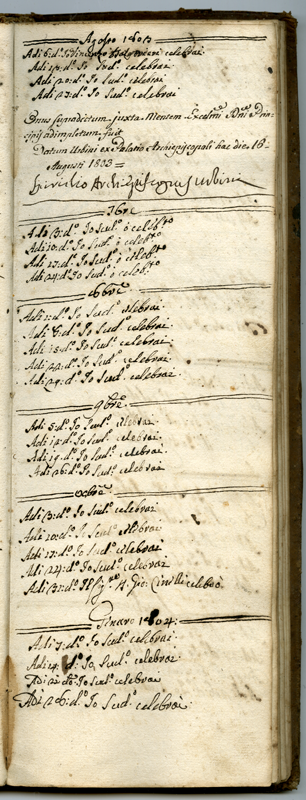 Agosto 1803
Adi 6: d.º Io celebrai
Adi 13: d.º Io Sud.º celebrai
Adi 20: d.º Io Sud.º celebrai
Adi 27: d.º Io Sud.º celebrai
Onus supradictum juxta Mentem
adimpletum fuit
Datum Urbini ex Palatio Archiepiscopali hac die 16
Augusti 1803 =
Archiepiscopus Urbini
7bre
Adi 3: d.º Io Sud.º ò celeb.to
Adi 10: d.º Io Sud.º ò celeb.to
Adi 17: d.º Io Sud.º ò celeb.to
Adi 24: d.º Io Sud.º ò celeb.to
8bre
Adi 1: d.º Io Sud.º celebrai
Adi 8: d.º Io Sud.º celebrai
Adi 15: d.º Io Sud.º celebrai
Adi 22: d.º Io Sud.º celebrai
Adi 29: d.º Io Sud.º celebrai
9bre
Adi 5: d.º Io Sud.º celebrai
Adi 12: d.º Io Sud.º celebrai
Adi 19: d.º Io Sud.º celebrai
Adi 26: d.º Io Sud.º celebrai
xbre
Adi 3: d.º Io Sud.º celebrai
Adi 10: d.º Io Sud.º celebrai
Adi 17: d.º Io Sud.º celebrai
Adi 24: d.º Io Sud.º celebrai
Adi 31: d.º Il Sig.re Gio: Cinelli celebrò
Genaro 1804:
Adi 7: d.º Io Sud.º celebrai
Adi 14: d.º Io Sud.º celebrai
Adi d.º Io Sud.º celebrai
Adi d.º Io Sud.º celebrai